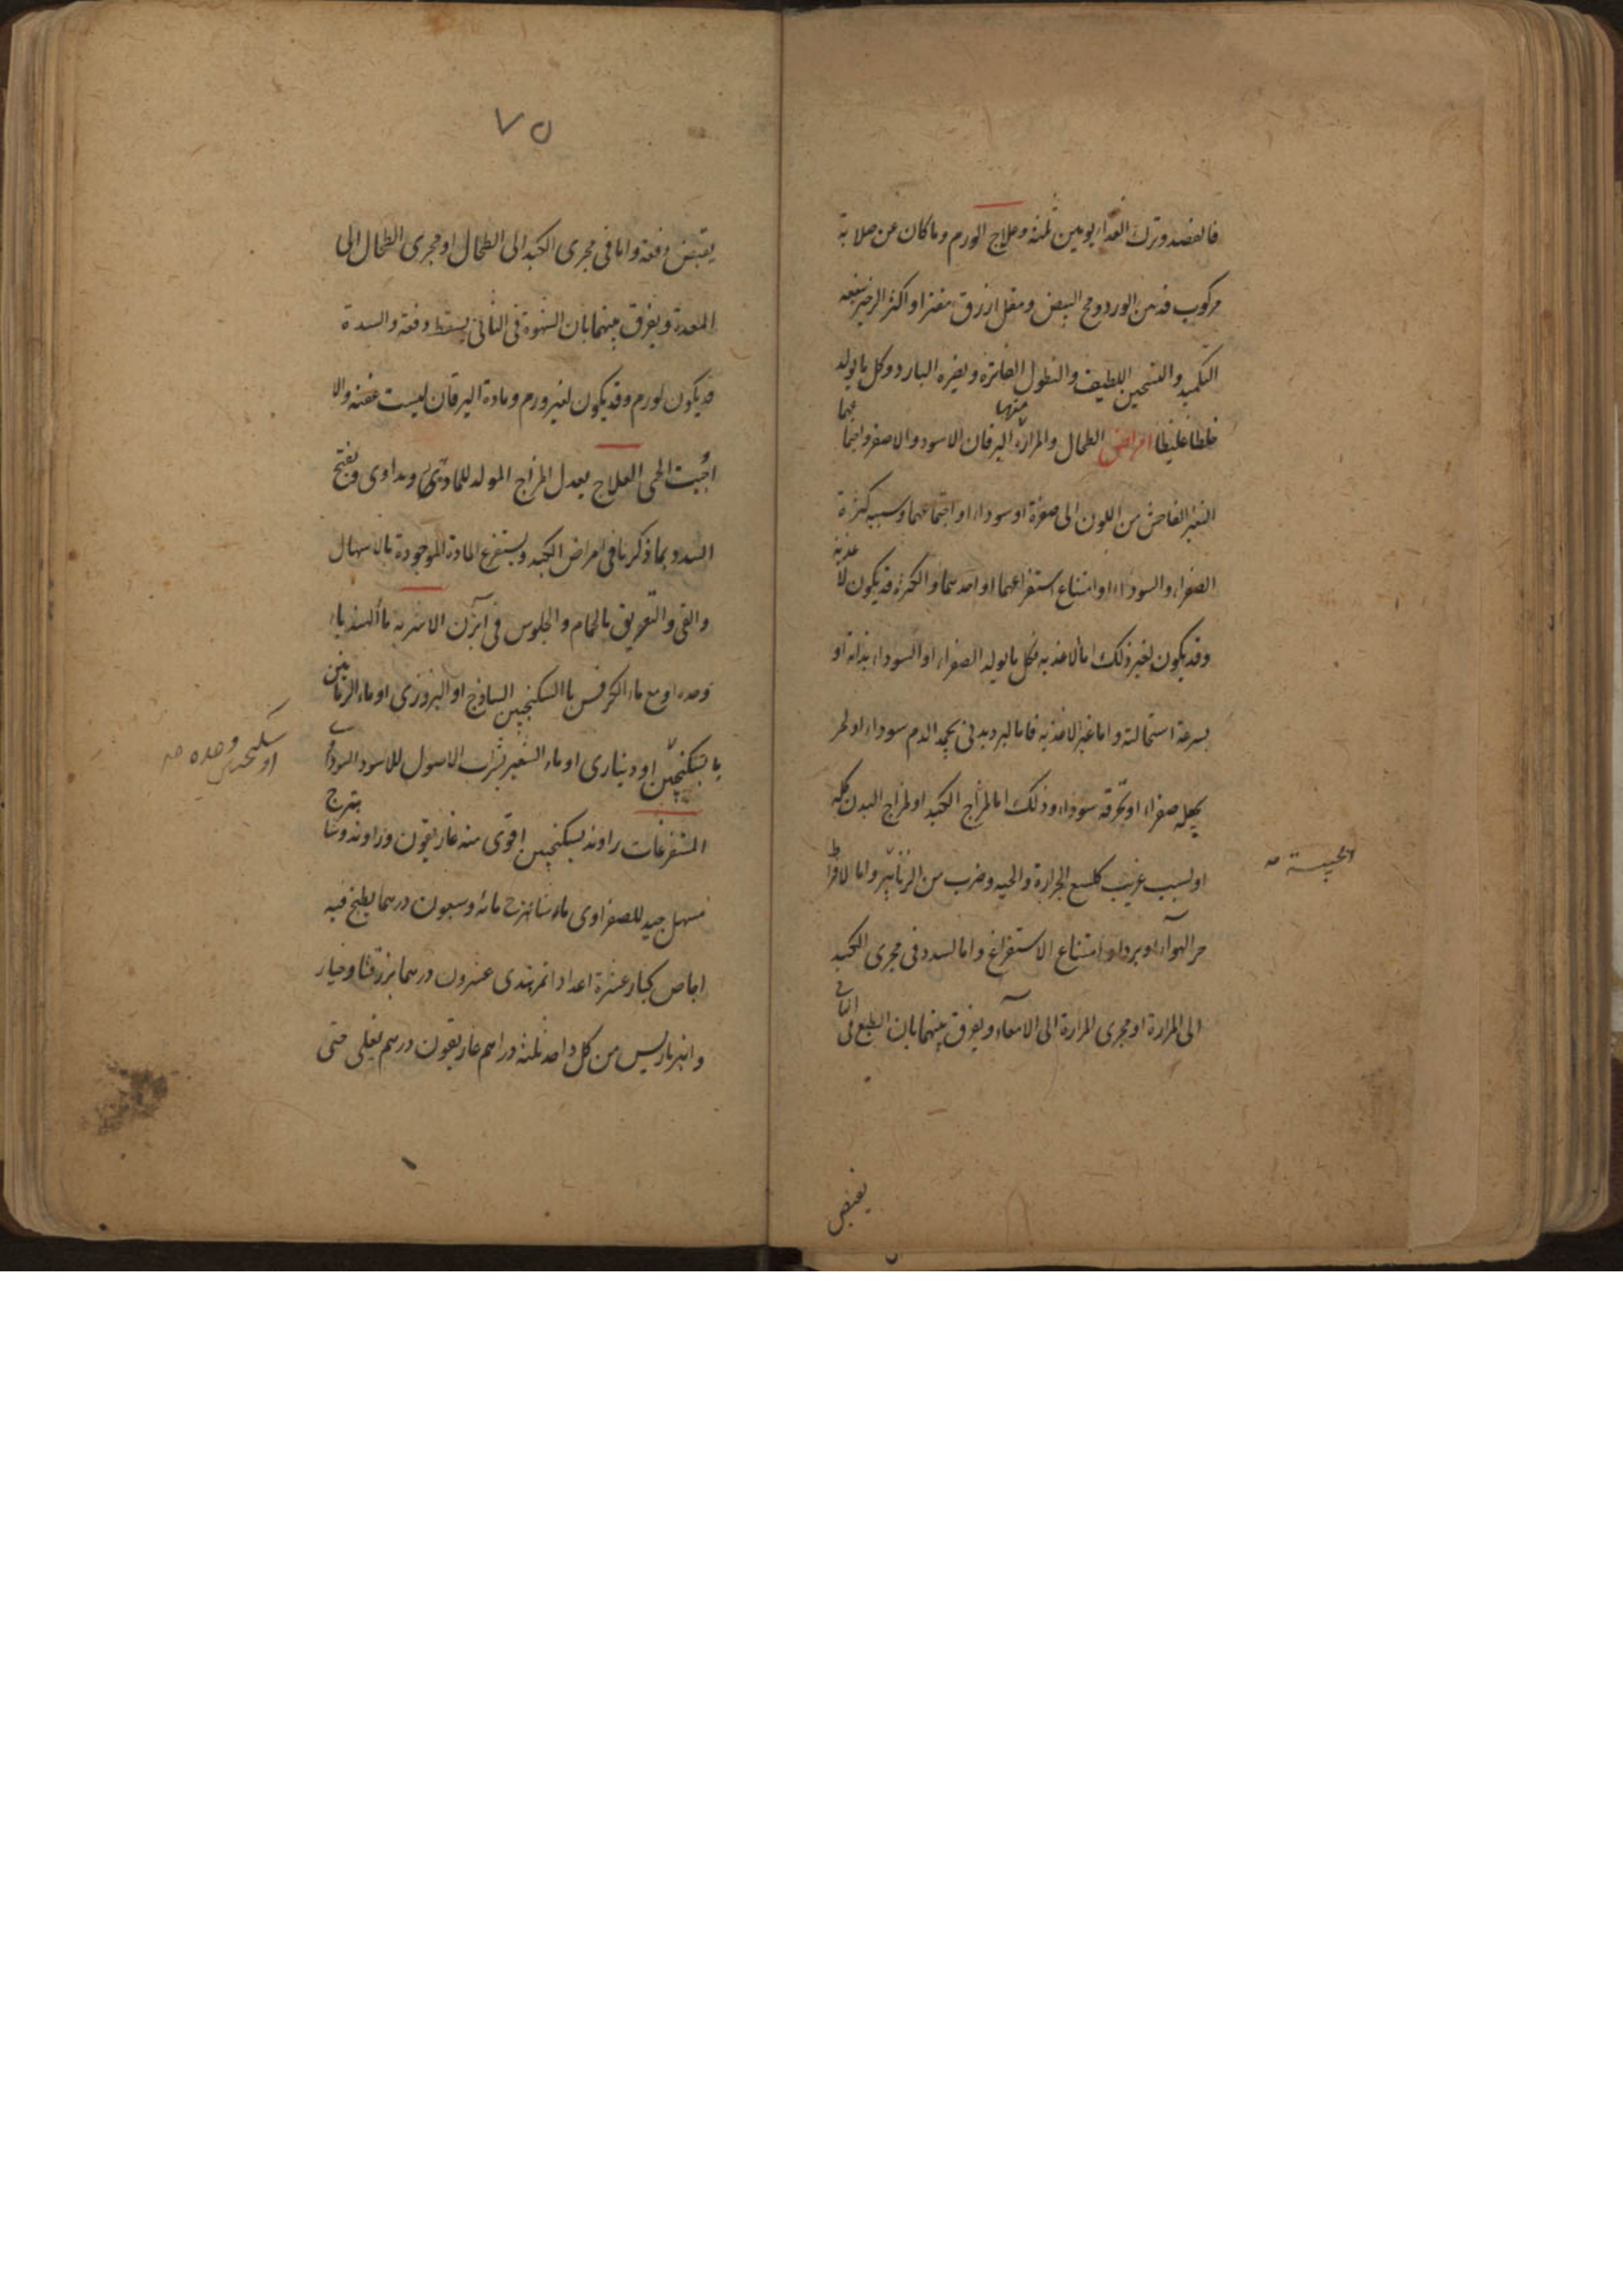 فالفصد وترك الغذاء يومين ثلثة وعلاج الورم وما كان عن صلابة
مركوب فدهن الورد ومح البيض ومقل ازرق مفترا واكثر الزحير ينفعه
التكميد والتسخين اللطيف والنطول الفاترة ويضره البارد وكل ما يولد
خلطا غليظا امراض الطحال والمرارة منها اليرقان الاسود والاصفر واجتماعهما
التغير الفاحش من اللون الى صفرة او سواد او اجتماعهما وسببه كثرة
الصفراء والسوداء او امتناع استفراغهما او احدهما والكثرة قد يكون لاغذية
وقد يكون لغير ذلك اما الاغذية فكل ما يولد الصفراء او السوداء بذاته او
بسرعة استحالته واما غير الاغذية فاما لبرد بدنى يجمد الدم سوداء او لحر
يحيله صفراء او يحرقه سوداء وذلك اما لمزاج الكبد او لمزاج البدن كله
او لسبب غريب كلسع الجرارة والحية وضرب من الزنانير واما لافراط
الخبيثة صح
حر الهواء او برده او امتناع الاستفراغ واما لسدد فى مجرى الكبد
الى المرارة او مجرى المرارة الى الامعاء ويفرق بينهما بان الطبع فى الثانى
يقبض
٧٥
يقبض دفعة واما فى مجرى الكبد الى الطحال او مجرى الطحال الى
المعدة ويفرق بينهما بان الشهوة فى الثانى يسقط دفعة والسدة
قد يكون لورم وقد يكون لغير ورم ومادة اليرقان ليست عفنة والا
اوجبت الحمى العلاج يعدل المزاج المولد للمادة ويداوى ويفتح
السدد بما ذكرنا فى امراض الكبد ويستفرغ المادة الموجودة بالاسهال
والقى والتعريق بالحمام والجلوس فى آبزن الاشربة ماء الهندباء
وحده او مع ماء الكرفس بالسكنجبين الساذج او البزورى او ماء الرمانين
بالسكنجبين او دينارى او ماء الشعير بشراب الاصول للاسود السوداوى
او سكنجبين وحده صح
المستفرغات راوند بسكنجبين اقوى منه غاريقون وراوند وشاهترج
مسهل جيد للصفراوى ماء شاهترج مائة وسبعون درهما يطبخ فيه
اجاص كبار عشرة اعداد تمر هندى عشرون درهما بزر قثا وخيار
وانبرباريس من كل واحد ثلثة دراهم غاريقون درهم يغلى حتى